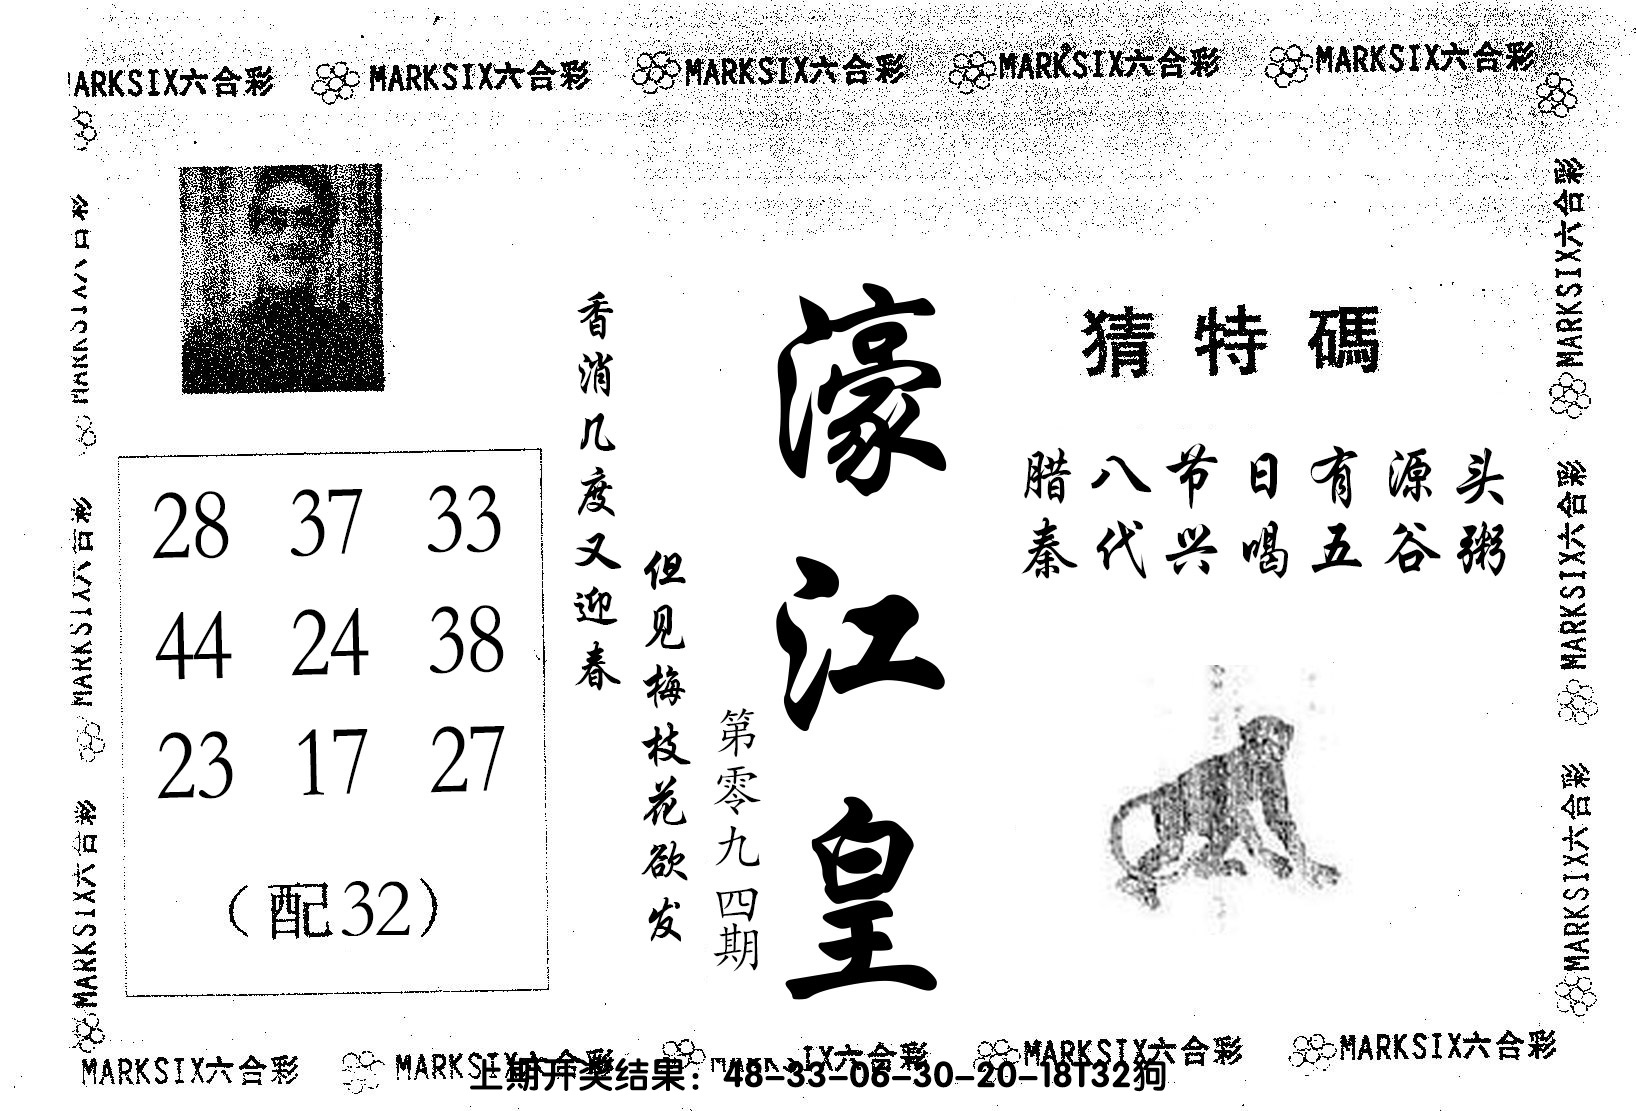 MARKSIX六合彩 MARKSIX六合彩 MARKSIX六合彩 MARKSIX六合彩
MARKSIX六合彩
MARKSIX六合彩
MARKSIX六合彩
MARKSIX六合彩
MARKSIX六合彩
猜特碼
腊八节日有源头
秦代兴喝五谷粥
濠江皇
第零九四期
但见梅枝花欲发
香消几度又迎春
28 37 33
44 24 38
23 17 27
(配32)
MARKSIX六合彩 MARKSIX六合彩 MARKSIX六合彩 MARKSIX六合彩
上期开奖结果：48-33-06-30-20-18T32狗